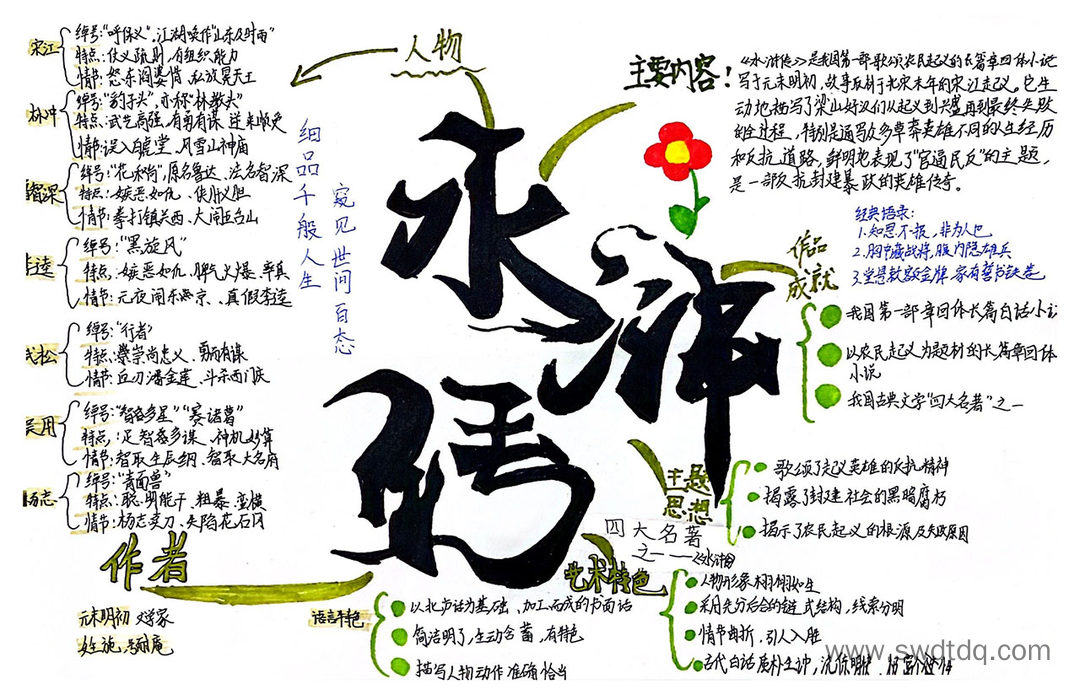 人物
宋江
绰号:“呼保义”,江湖唤作“山东及时雨”
特点:仗义疏财,有组织能力
情节:怒杀阎婆惜、私放晁天王
林冲
绰号:“豹子头”,亦称“林教头”
特点:武艺高强、有勇有谋、逆来顺受
情节:误入白虎堂、风雪山神庙
智深
绰号:“花和尚”,原名鲁达、法名智深
特点:嫉恶如仇、侠肝义胆
情节:拳打镇关西、大闹五台山
李逵
绰号:“黑旋风”
特点:嫉恶如仇、脾气火爆、率真
情节:元夜闹东京、真假李逵
武松
绰号:“行者”
特点:崇尚忠义、勇而有谋
情节:血刃潘金莲、斗杀西门庆
吴用
绰号:“智多星”“赛诸葛”
特点:足智多谋、神机妙算
情节:智取生辰纲、智取大名府
杨志
绰号:“青面兽”
特点:聪明能干、粗暴、蛮横
情节:杨志卖刀、失陷花石冈
细品千般人生
窥见世间百态
水浒传
主要内容!
《水浒传》是我国第一部歌颂农民起义的长篇章回体小说
写于元末明初,故事取材于北宋末年的宋江起义。它生
动地描写了梁山好汉们从起义到兴盛再到最终失败
的全过程,特别是通过众多草莽英雄不同的人生经历
和反抗道路,鲜明地表现了“官逼民反”的主题,
是一部反抗封建暴政的英雄传奇。
经典语录:
1.知恩不报,非为人也
2.胸中藏战将,腹内隐雄兵
3.堂悬敕额金牌,家有誓书铁券
作品
成就
我国第一部章回体长篇白话小说
以农民起义为题材的长篇章回体
小说
我国古典文学“四大名著”之一
主题
思想
歌颂了起义英雄的反抗精神
揭露了封建社会的黑暗腐朽
揭示了农民起义的根源及失败原因
四大名著
之一——《水浒传》
艺术特色
人物形象栩栩如生
采用先分后合的链式结构,线索分明
情节曲折,引人入胜
古代白话质朴生动,洗练明快
作者
元末明初 文学家
姓施,号耐庵
语言特色
以北方话为基础、加工而成的书面话
简洁明了,生动含蓄,有特色
描写人物动作准确恰当
www.swdtdq.com